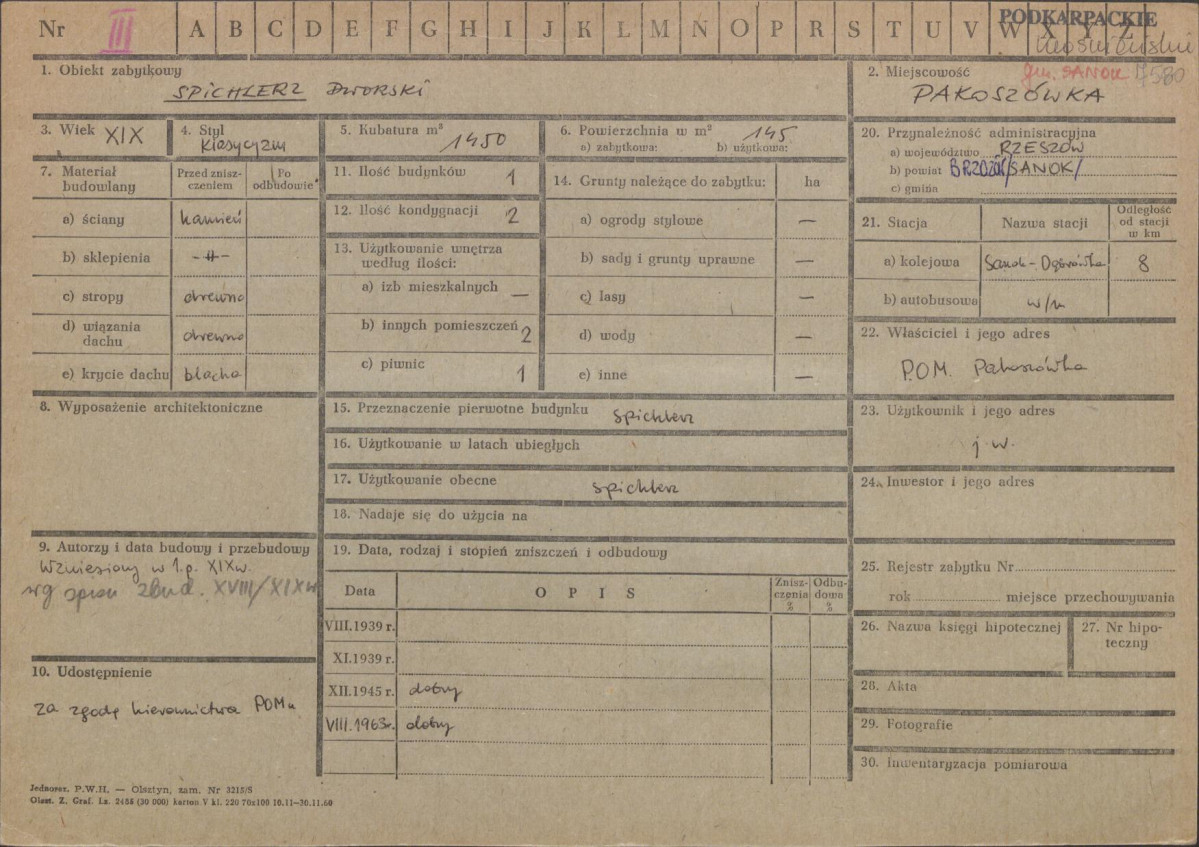 Nr III A B C D E F G H I J K L M N O P R S T U V W X Y Z PODKARPACKIE
gm. SANOK 7580
1. Obiekt zabytkowy
SPICHLERZ DWORSKI
2. Miejscowość
PAKOSZÓWKA
3. Wiek XIX
4. Styl
klasycyzm
5. Kubatura m³ 1450
6. Powierzchnia w m² 145
a) zabytkowa: b) użytkowa:
20. Przynależność administracyjna
a) województwo RZESZÓW
b) powiat BRZOZÓW /SANOK/
c) gmina
7. Materiał budowlany
Przed zniszczeniem
Po odbudowie
a) ściany kamień
b) sklepienia -〃-
c) stropy drewno
d) wiązania dachu drewno
e) krycie dachu blacha
11. Ilość budynków 1
12. Ilość kondygnacji 2
13. Użytkowanie wnętrza
według ilości:
a) izb mieszkalnych —
b) innych pomieszczeń 2
c) piwnic 1
14. Grunty należące do zabytku: ha
a) ogrody stylowe —
b) sady i grunty uprawne —
c) lasy —
d) wody —
e) inne —
21. Stacja Nazwa stacji Odległość od stacji w km
a) kolejowa Sanok-Dąbrówka 8
b) autobusowa w/m
22. Właściciel i jego adres
P.O.M. Pakoszówka
8. Wyposażenie architektoniczne
15. Przeznaczenie pierwotne budynku spichlerz
16. Użytkowanie w latach ubiegłych
17. Użytkowanie obecne spichlerz
18. Nadaje się do użycia na
23. Użytkownik i jego adres
j.w.
24. Inwestor i jego adres
9. Autorzy i data budowy i przebudowy
Wzniesiony w 1.p. XIXw.
wg spisu zbud. XVIII/XIXw
19. Data, rodzaj i stopień zniszczeń i odbudowy
Data OPIS Zniszczenia % Odbudowa %
VIII.1939 r.
XI.1939 r.
XII.1945 r. dobry
VIII.1963r. dobry
10. Udostępnienie
za zgodą kierownictwa POMu
25. Rejestr zabytku Nr
rok miejsce przechowywania
26. Nazwa księgi hipotecznej
27. Nr hipoteczny
28. Akta
29. Fotografie
30. Inwentaryzacja pomiarowa
Jednoraz. P.W.H. — Olsztyn, zam. Nr 3215/S
Olszt. Z. Graf. Lz. 2488 (30 000) karton V kl. 220 70x100 10.11—30.11.60